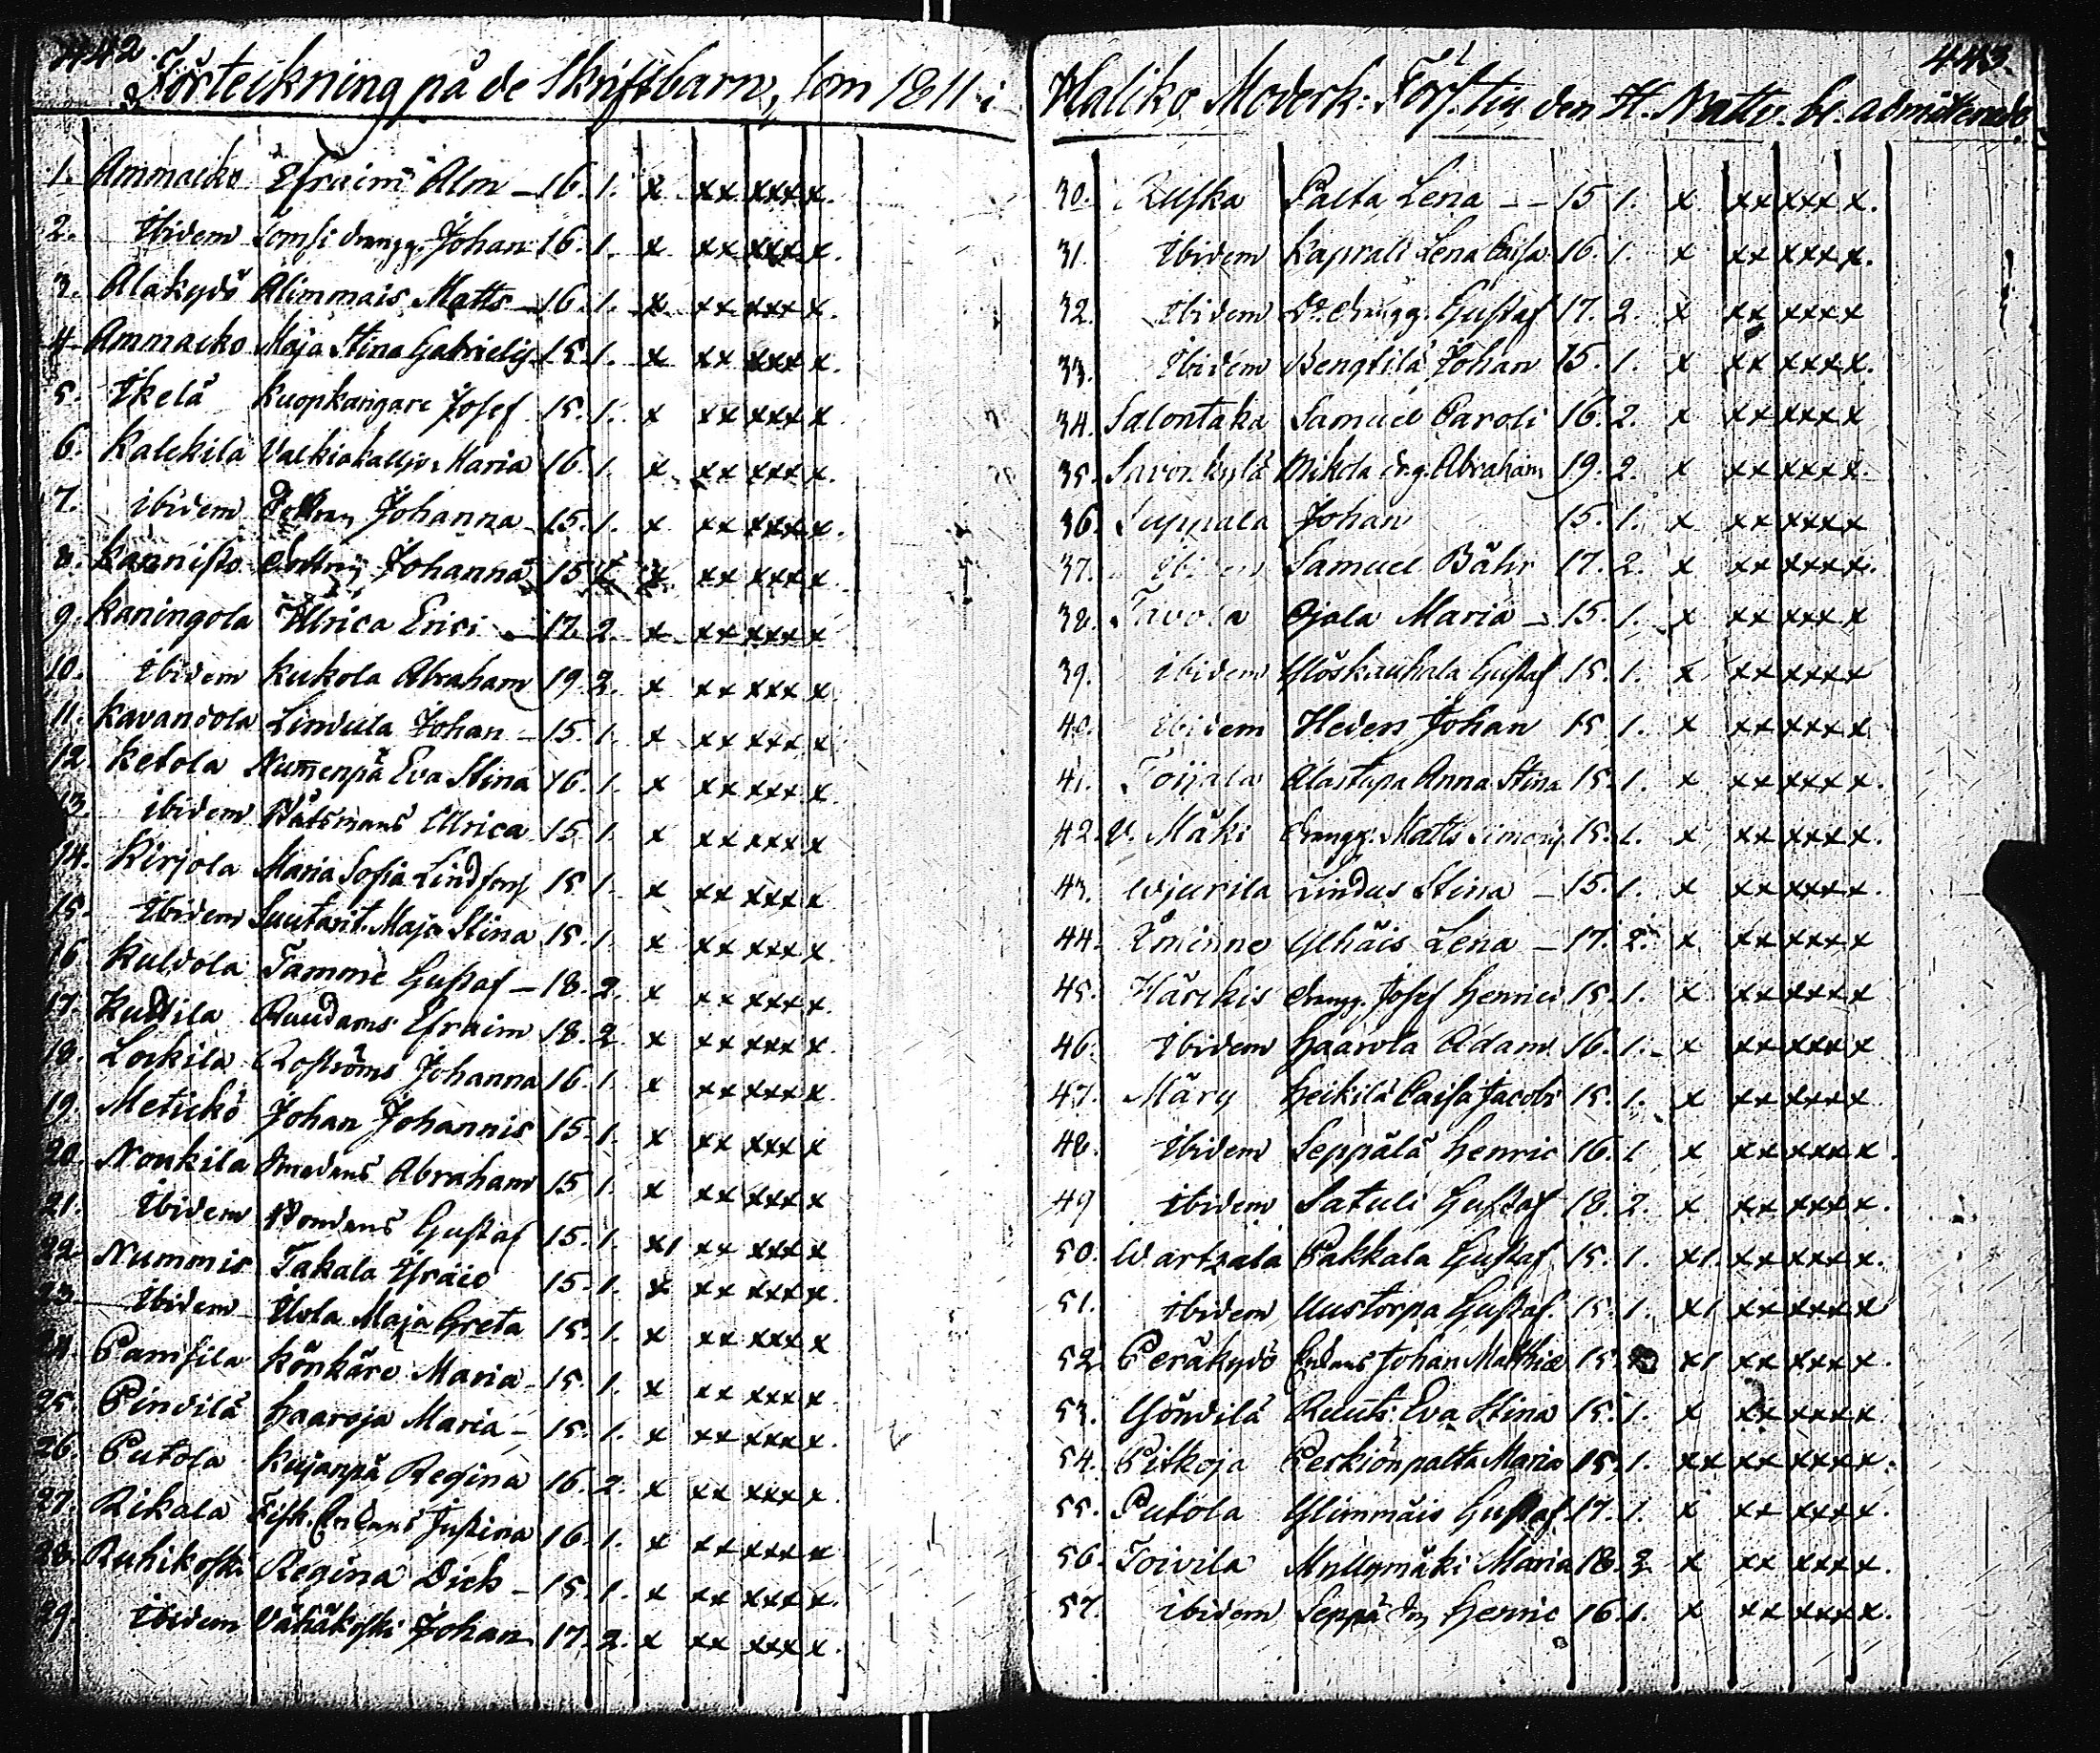 442.
Förteckning på de Skriftbarn, som 1811 i
1. Ammaiko Efraim Alm — 16. 1. x xx xxx x.
2. Ibidem Tomsi drengg. Johan 16. 1. x xx xxx x.
3. Alakydö Alimmais Matts — 16. 1. x xx xxx x.
4. Ammaiko Maja Stina Gabriels 15. 1. x xx xxx x.
5. Ikelä Kuopkangare Josef 15. 1. x xx xxx x
6. Kalekila Valkiakalljo Maria 16. 1. x xx xxx x.
7. ibidem Johanna 15. 1. x xx xxx x.
8. Kannisto Johanna 15 x xx xxx x.
9. Kaningola Ulrica Erici — 17. 2. x xx xxx x
10. Ibidem Kukola Abraham 19. 2. x xx xxx x.
11. Kavandola Lindula Johan — 15. 1. x xx xxx x.
12. Ketola Numenpä Eva Stina 16. 1. x xx xxx x.
13. ibidem Båtsmans Ulrica 15. 1. x xx xxx x
14. Kirjola Maria Sofia Lindfors 15 1. x xx xxx x
15. Ibidem Suutarit. Maja Stina 15. 1. x xx xxx x.
16. Kuldola Tamme Gustaf — 18. 2. x xx xxx x.
17. Kudila Ruudams Efraim 18. 2. x xx xxx x.
18. Lockila Roströms Johanna 16. 1. x xx xxx x.
19. Metickö Johan Johannis 15. 1. x xx xxx x
20. Nonkila Smedens Abraham 15 1. x xx xxx x
21. Ibidem Gustaf 15. 1. x1 xx xxx x
22. Nummis Takala Israel 15. 1. x xx xxx x.
23. Ibidem Ulola Maja Greta 15. 1. x xx xxx x
24. Pamfila Könkäre Maria 15. 1. x xx xxx x.
25. Pindilä Haaroja Maria — 15. 1. x xx xxx x.
26. Putola Kujanpä Regina 16. 2. x xx xxx x.
27. Rikala Fisk. Enkans Justina 16. 1. x xx xxx x
28. Ruhikoski Regina Dick — 15. 1. x xx xxx x.
29. Ibidem Vähäkoski Johan 17. 2. x xx xxx x.
443.
Haliko Moderk: Förs. til den H. Nattv. bl. admitterade.
30. Ruska Palta Lena — 15 1. x xx xxx x.
31. Ibidem Kaprali Lena Caisa 16. 1. x xx xxx x.
32. Ibidem Do. drengg. Gustaf 17. 2. x xx xxx x
33. Ibidem Bengtilä Johan 15. 1. x xx xxx x.
34. Salontaka Samuel Caroli 16. 2. x xx xxx x
35. Savonkylä Mikola dr.g. Abraham 19. 2. x xx xxx x.
36. Suppala Johan 15. 1. x xx xxx x
37. Ibidem Samuel Bähr 17. 2. x xx xxx x.
38. Tavola Ojala Maria — 15. 1. x xx xxx x
39. ibidem Ylöskauhala Gustaf 15. 1. x xx xxx x
40. Ibidem Heden Johan 15 1. x xx xxx x
41. Toijala Alastupa Anna Stina 15. 1. x xx xxx x.
42. V. Mäki drengg. Matts Simons 15. 1. x xx xxx x.
43. Wjurila Lindus Stina — 15. 1. x xx xxx x.
44. Åminne Ylhäis Lena — 17. 2. x xx xxx x
45. Härckis drengg. Josef Henrici 15. 1. x xx xxx x
46. Ibidem Haarola Adam 16. 1. x xx xxx x
47. Märy Heikilä Caisa Jacobi 15. 1. x xx xxx x
48. Ibidem Seppälä Henric 16. 1 x xx xxx x.
49 Ibidem Satuli Gustaf 18. 2. x xx xxx x.
50. Wartsala Pakkala Gustaf 15. 1. x1. xx xxx x.
51. ibidem Uustorpa Gustaf. 15. 1. x1 xx xxx x
52. Peräkydö Enkans Johan Mathiæ 15. x1 xx xxx x.
53. Yöndilä Ruuts Eva Stina 15. 1. x xx xxx x.
54. Pitkoja Perkiönpalta Maria 15. 1. xx xx xxx x.
55. Putola Ylimmäis Gustaf 17. 1. x xx xxx x.
56. Toivila Myllymäki Maria 18. 2 x xx xxx x.
57. ibidem Seppä Henric 16. 1. x xx xxx x.